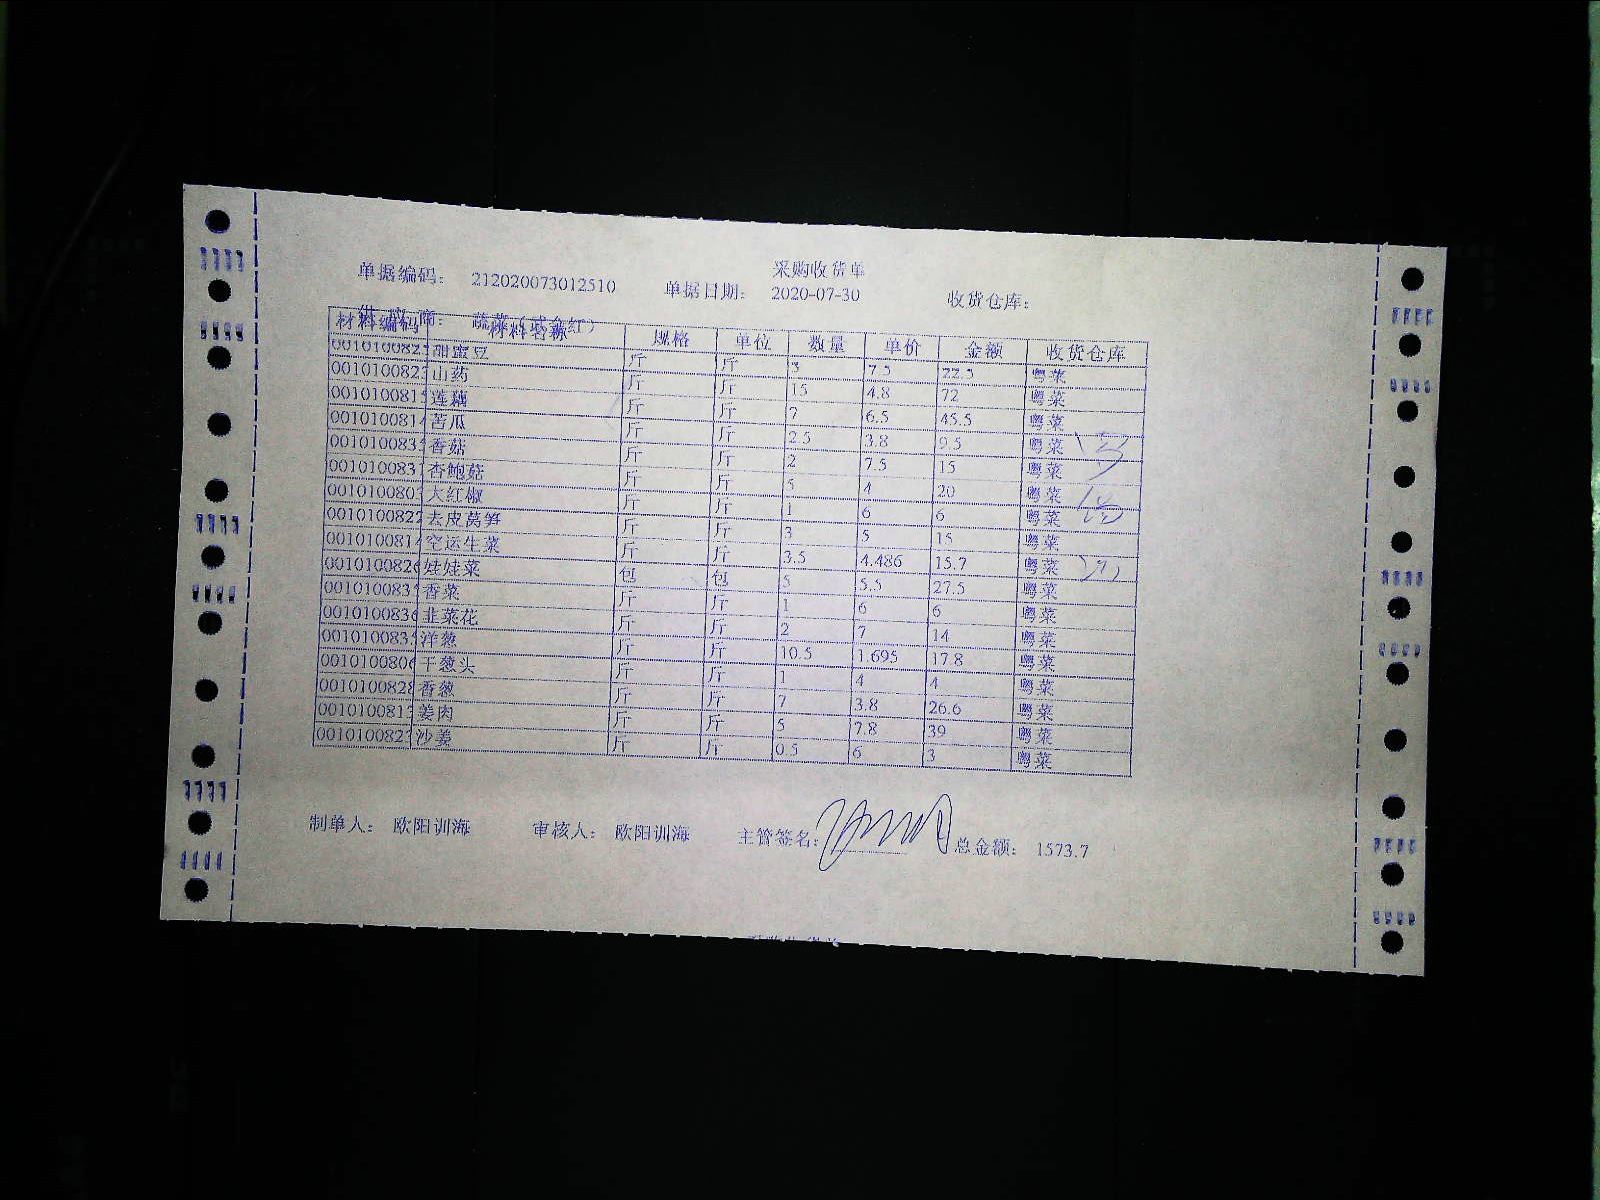 采购收货单
单据编码： 212020073012510 单据日期： 2020-07-30 收货仓库：
商： 蔬菜（ 红）
材料编码 材料名称 规格 单位 数量 单价 金额 收货仓库
001010082 甜蜜豆 斤 斤 3 7.5 22.5 粤菜
001010082 山药 斤 斤 15 4.8 72 粤菜
001010081 莲藕 斤 斤 7 6.5 45.5 粤菜
001010081 苦瓜 斤 斤 2.5 3.8 9.5 粤菜
001010083 香菇 斤 斤 2 7.5 15 粤菜
001010083 杏鲍菇 斤 斤 5 4 20 粤菜
001010080 大红椒 斤 斤 1 6 6 粤菜
001010082 去皮莴笋 斤 斤 3 5 15 粤菜
001010081 空运生菜 斤 斤 3.5 4.486 15.7 粤菜
001010082 娃娃菜 包 包 5 5.5 27.5 粤菜
001010083 香菜 斤 斤 1 6 6 粤菜
001010083 韭菜花 斤 斤 2 7 14 粤菜
001010083 洋葱 斤 斤 10.5 1.695 17.8 粤菜
001010080 干葱头 斤 斤 1 4 4 粤菜
001010082 香葱 斤 斤 7 3.8 26.6 粤菜
001010081 姜肉 斤 斤 5 7.8 39 粤菜
001010082 沙姜 斤 斤 0.5 6 3 粤菜
制单人： 欧阳训海 审核人： 欧阳训海 主管签名： 总金额： 1573.7